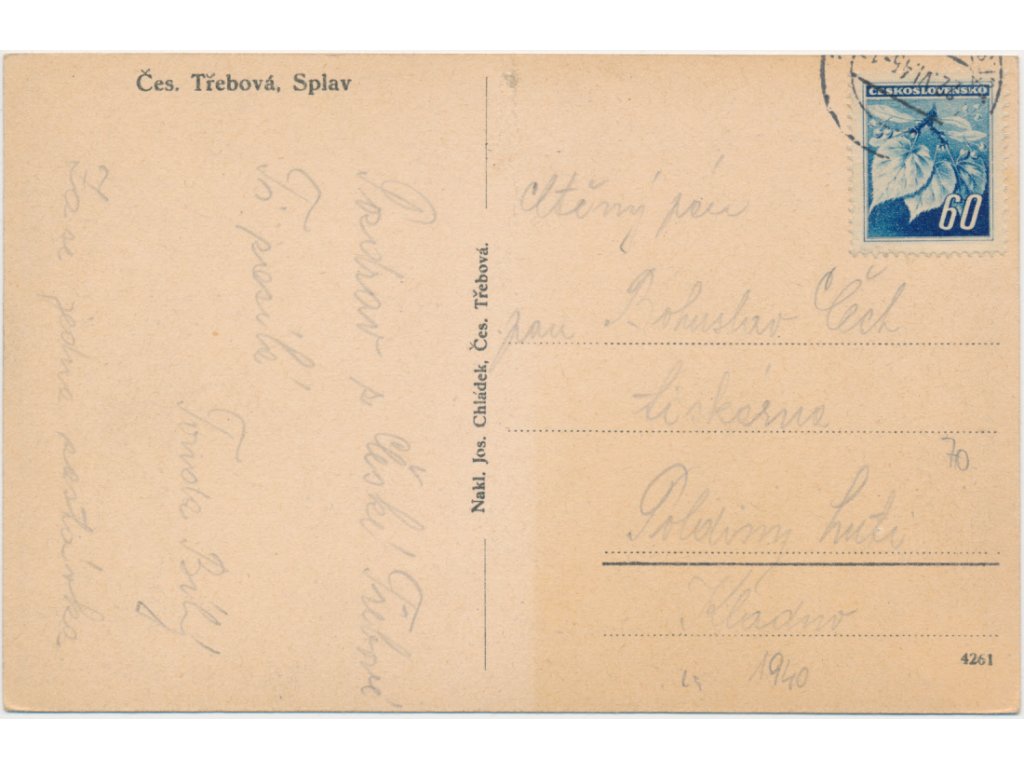 Čes. Třebová, Splav
Pozdrav z České Třebové
Ti posílá
Tonda Bílý
Zase jedna zastávka.
Nakl. Jos. Chládek, Čes. Třebová.
ČESKOSLOVENSKO
60
Ctěný pán
pan Bohuslav Čech
tiskárna
70
Poldiny huti
Kladno
1940
4261